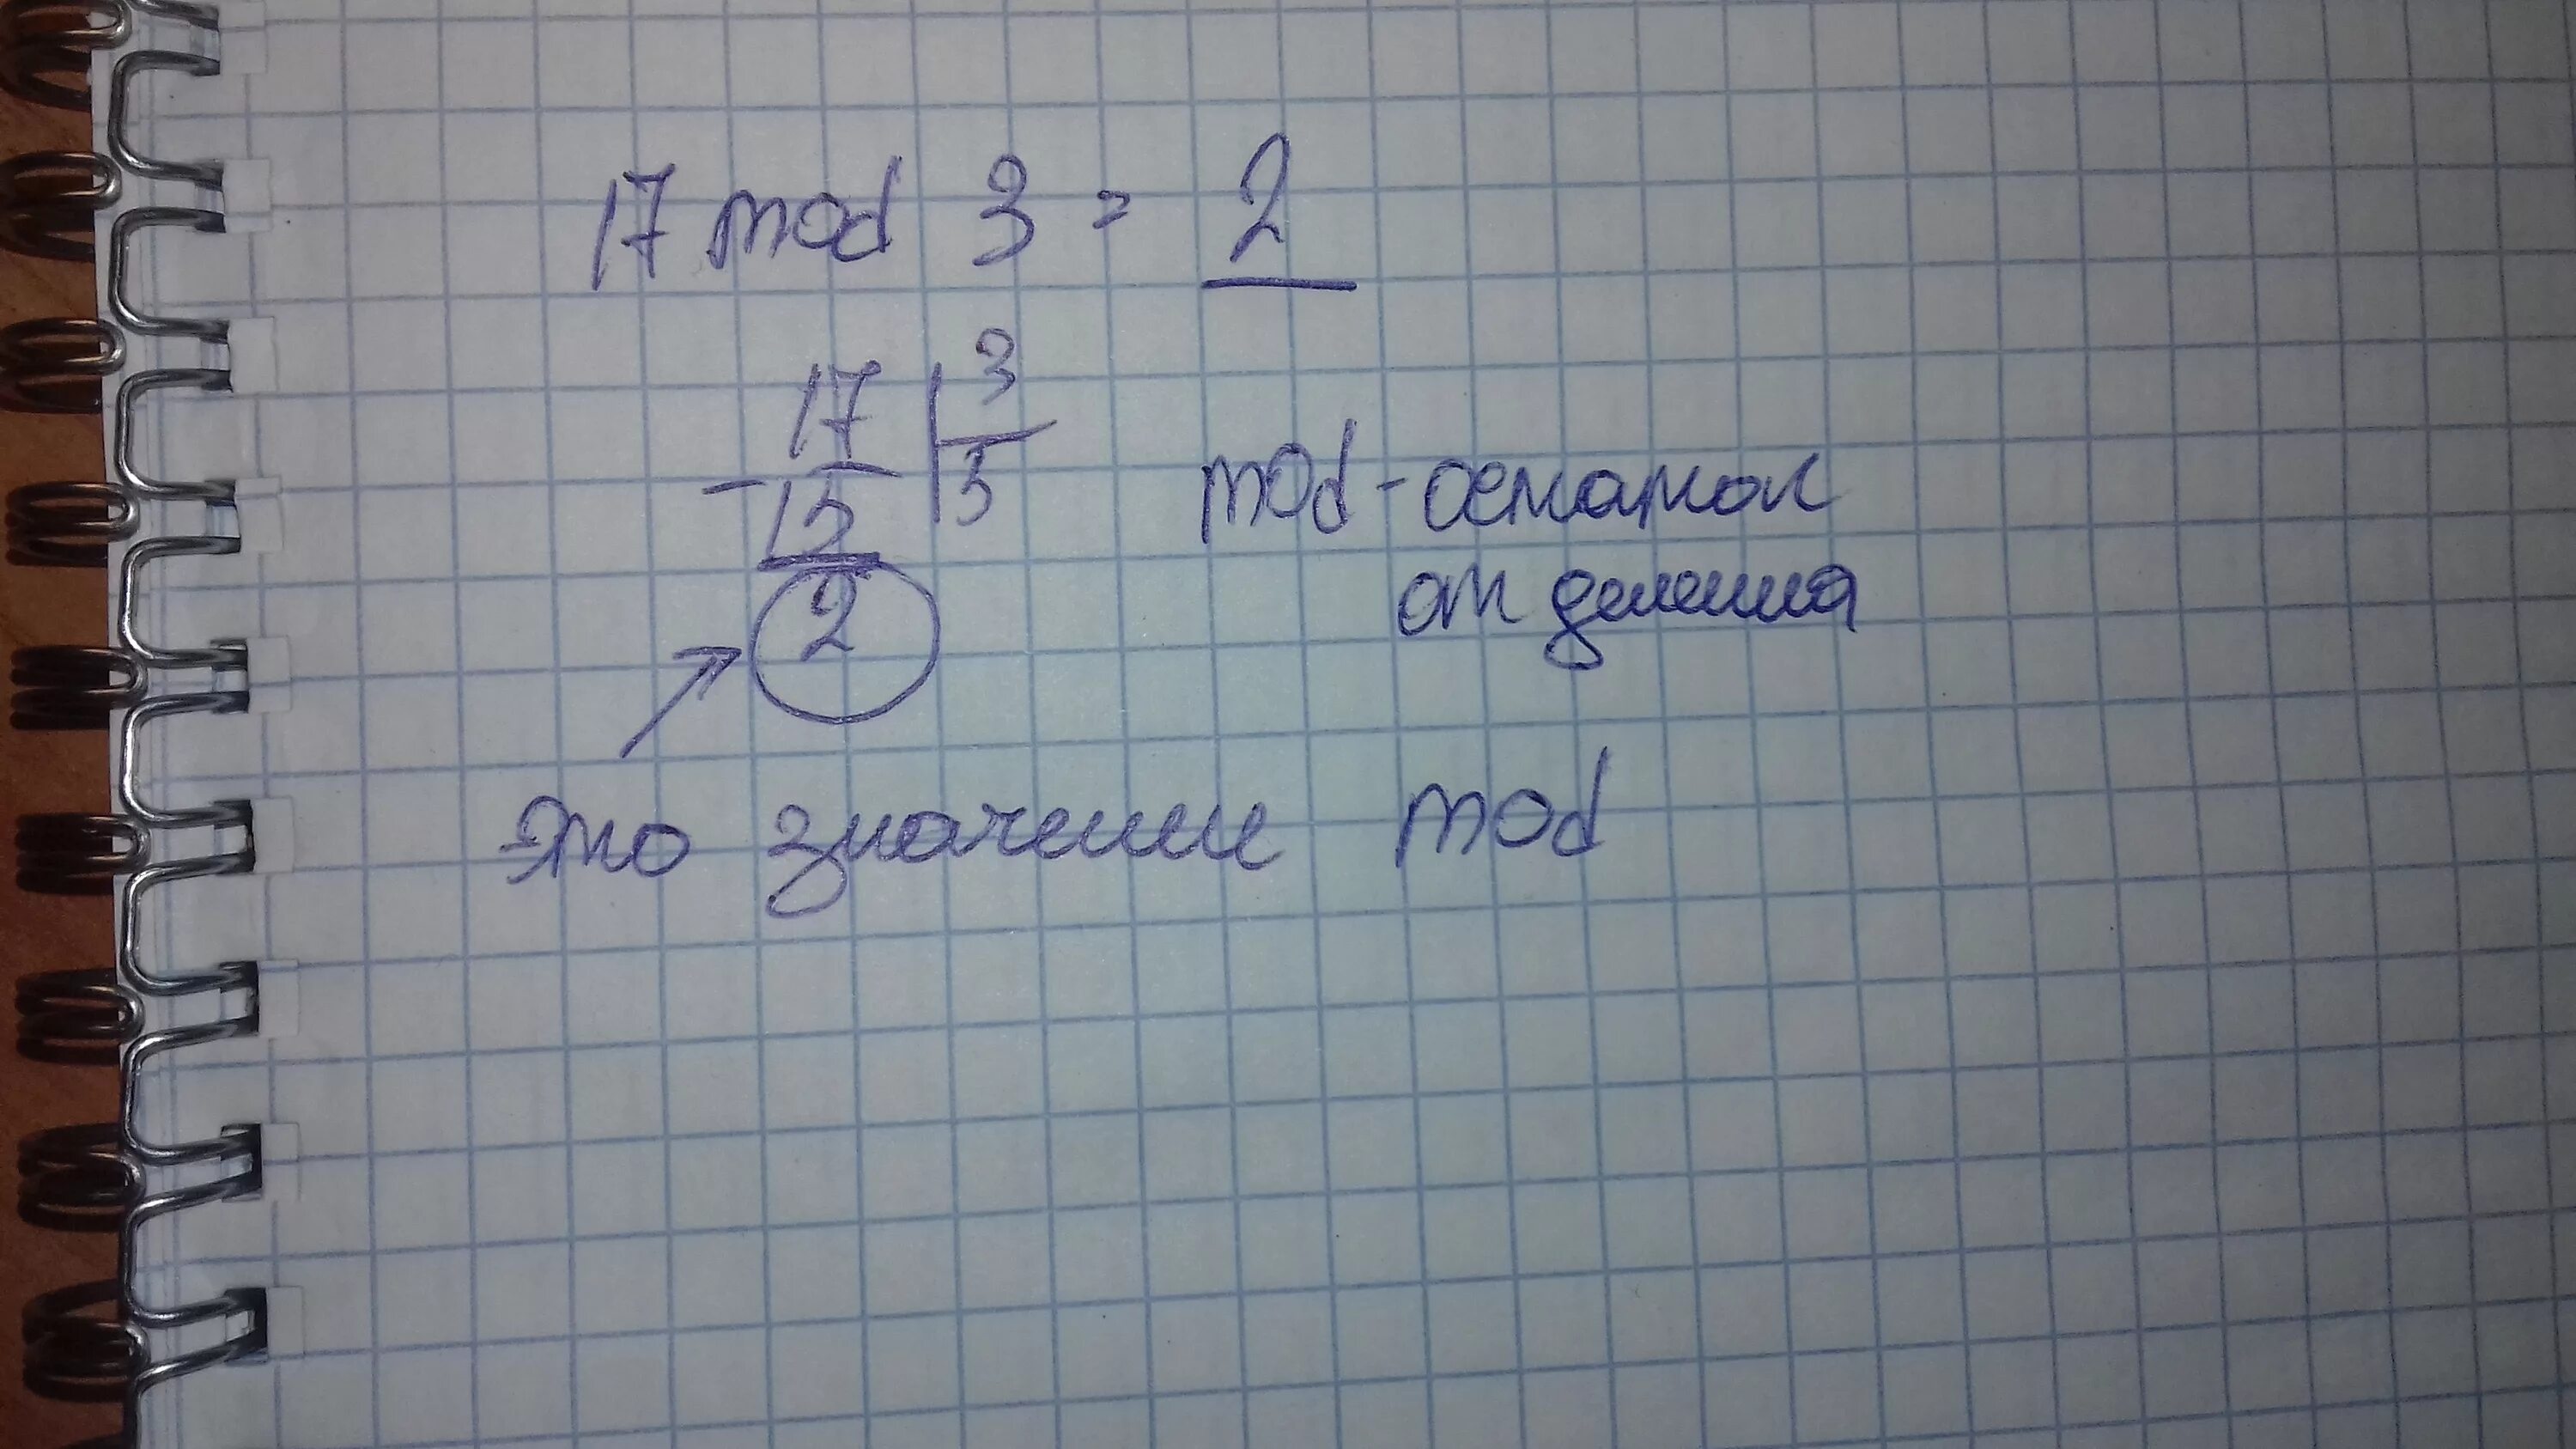 17 mod 3 = 2
17 | 3
- 15 | 5
2
mod - остаток
от деления
это значение mod